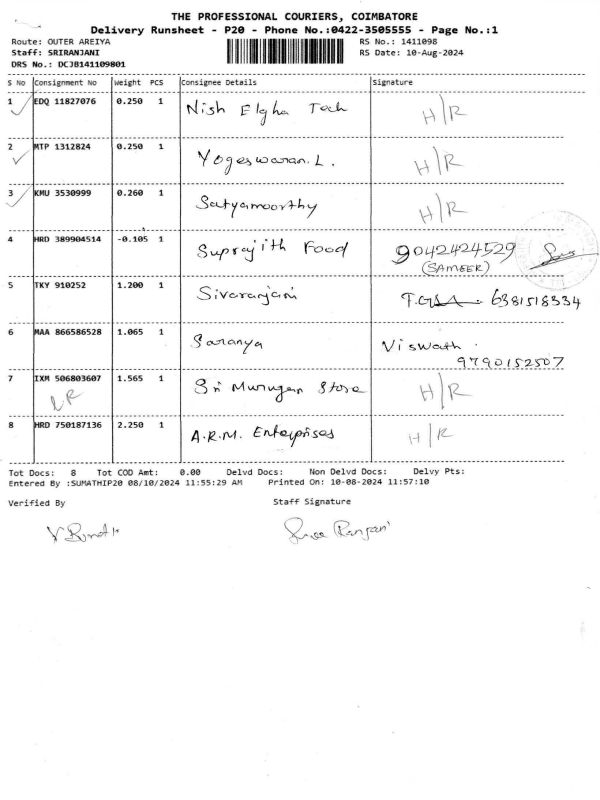 THE PROFESSIONAL COURIERS, COIMBATORE
Delivery Runsheet - P20 - Phone No.:0422-3505555 - Page No.:1
Route: OUTER AREIYA RS No.: 1411098
Staff: SRIRANJANI RS Date: 10-Aug-2024
DRS No.: DCJB141109801
S No Consignment No Weight PCS Consignee Details Signature
1 EDQ 11827076 0.250 1 Nish Elgha Tech H/R
2 MTP 1312824 0.250 1 Yogeswaran.L. H/R
3 KMU 3530999 0.260 1 Satyamoorthy H/R
4 HRD 389904514 -0.105 1 Suprajith Food 9042424529
(SAMEER)
5 TKY 910252 1.200 1 Sivaranjani 6381518334
6 MAA 866586528 1.065 1 Saranya Viswath.
9790152507
7 IXM 506803607 1.565 1 Sri Murugan Store H/R
8 HRD 750187136 2.250 1 A.R.M. Enterprises H/R
Tot Docs: 8 Tot COD Amt: 0.00 Delvd Docs: Non Delvd Docs: Delvy Pts:
Entered By :SUMATHIP20 08/10/2024 11:55:29 AM Printed On: 10-08-2024 11:57:10
Verified By Staff Signature